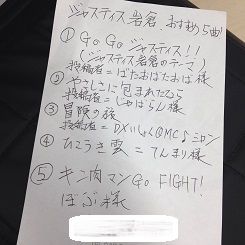 ジャスティス岩倉 おすすめ5曲!
① GO GO ジャスティス!!
(ジャスティス岩倉のテーマ)
投稿者=ばたおばたおば様
② やさしさに包まれたなら
投稿者=じゃばらん様
③ 冒険の旅
投稿者=DXいしょく@MC♪ミロン
④ ひこうき雲 = てんまり様
⑤ キン肉マンGO FIGHT!
ぼぶ様